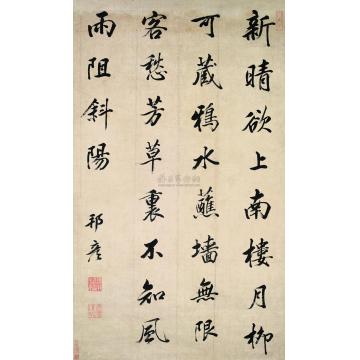 新晴欲上南樓月柳
可藏鴉水蘸墻無限
客愁芳草裏不知風
雨阻斜陽
祁彦